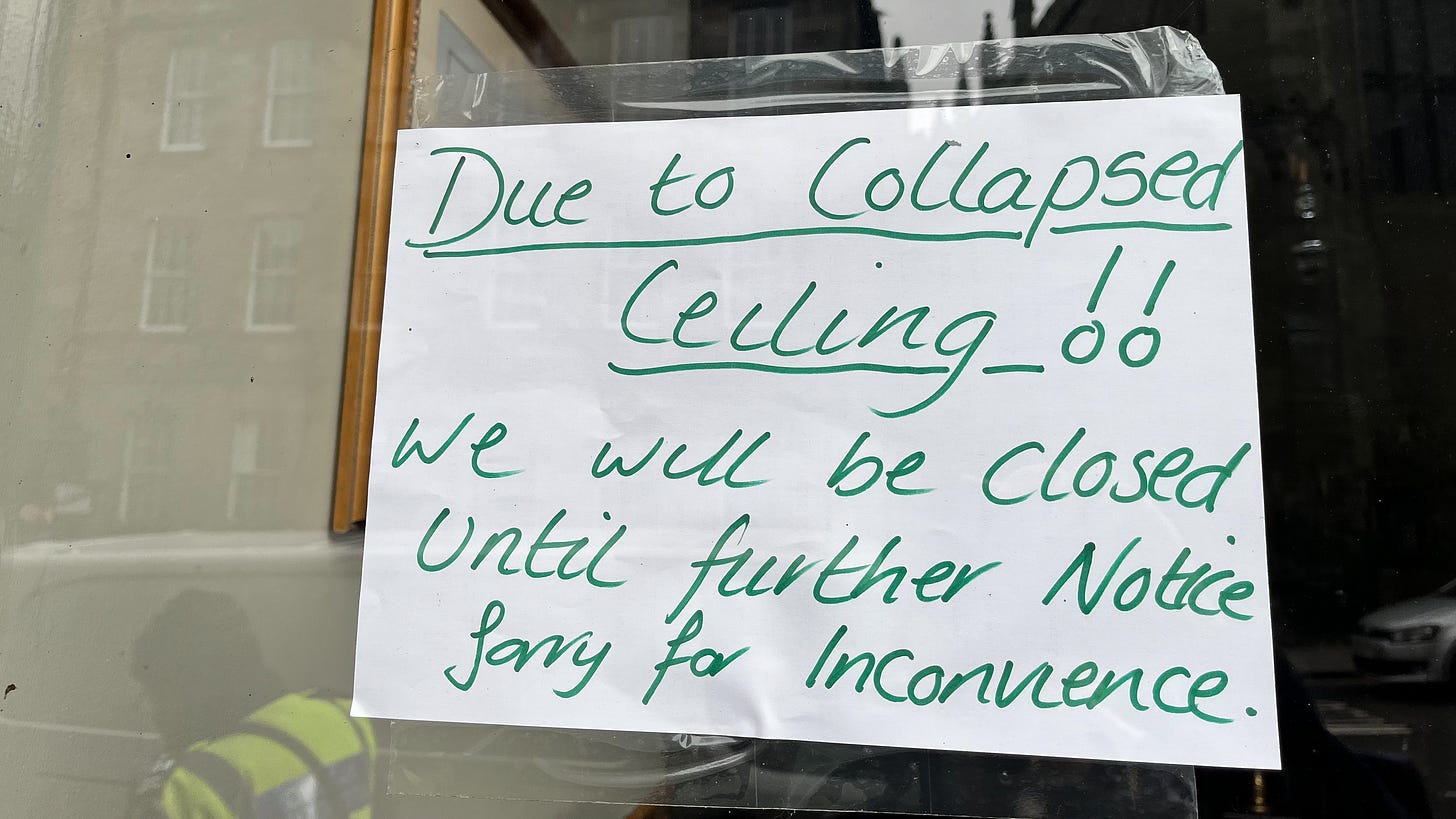 Due to Collapsed
Ceiling !!
We will be closed
Until further Notice
Sorry for Inconvience.